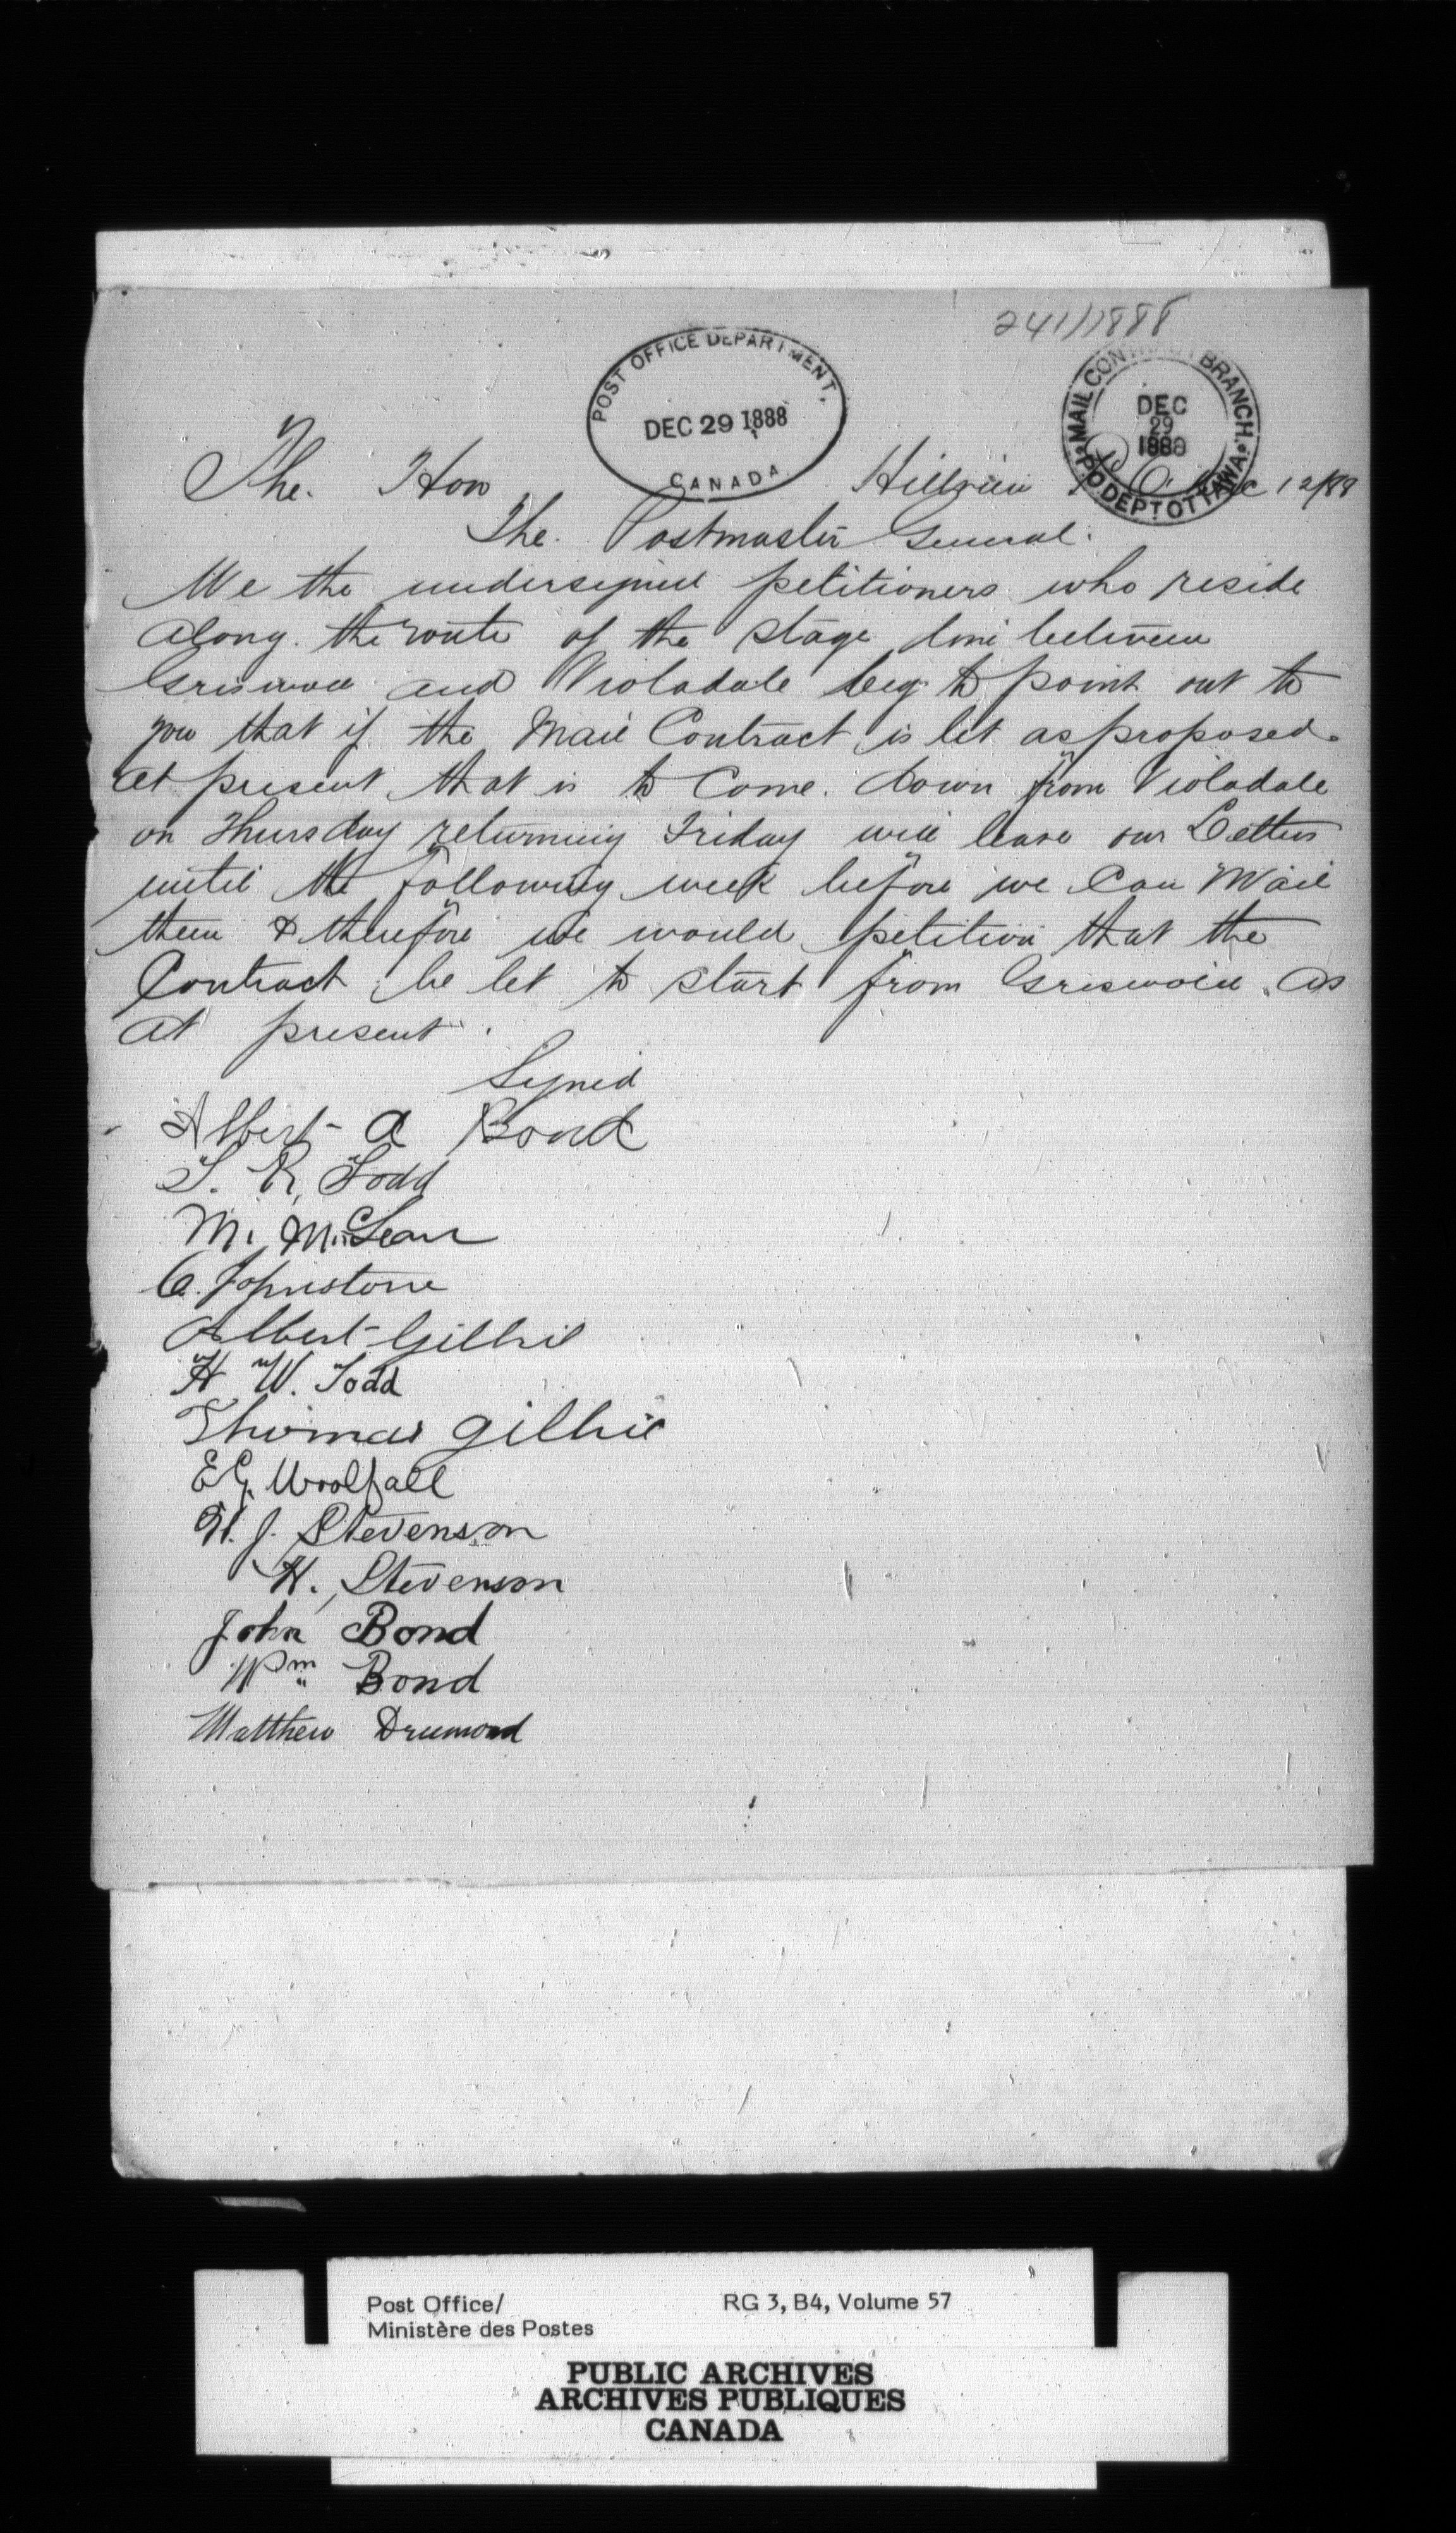 241/1888
POST OFFICE DEPARTMENT,
DEC 29 1888
CANADA
MAIL CONTRACT BRANCH.
DEC
29
1888
P.O. DEPT OTTAWA
The. Hon Hillview P.O. Dec 12/88
The. Postmaster General.
We the undersigned petitioners who reside
along. the route of the stage line between
Griswold and Violadale beg to point out to
you that if the Mail Contract is let as proposed.
at present that is to Come. down from Violadale
on Thursday returning Friday will leave our Letters
until the following week before we Can Mail
them & therefore we would petition that the
Contract be let to start from Griswold. as
at present.
Signed
Albert A Bond
T. R. Todd
M. McLean
C. Johnstone
Albert Gilhie
H W. Todd
Thomas Gilhie
E G. Woolfall
H. J. Stevenson
H. Stevenson
John Bond
Wm Bond
Matthew Drumond
Post Office/ RG 3, B4, Volume 57
Ministère des Postes
PUBLIC ARCHIVES
ARCHIVES PUBLIQUES
CANADA